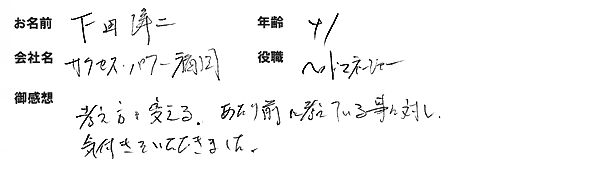 お名前 下田 隼二 年齢 41
会社名 サクセス・パワー福岡 役職 ヘッドマネージャー
御感想
考え方を変える。あたり前に考えている事に対し、
気付きをいただきました。